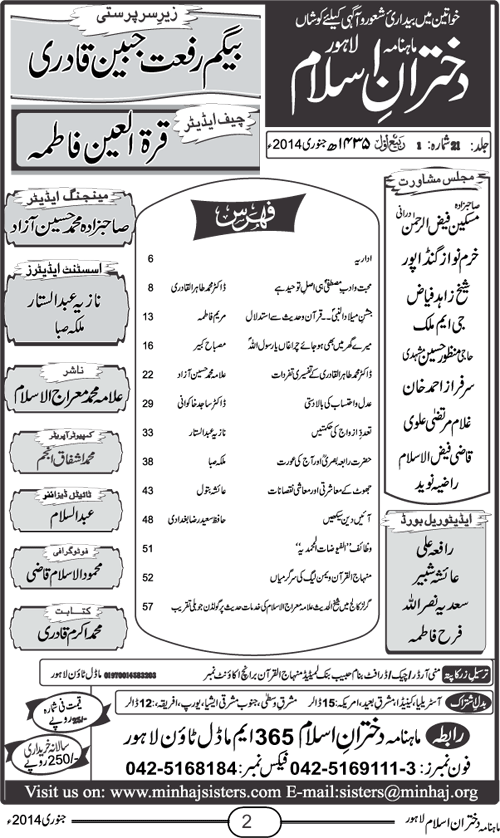 خواتین میں بیداریٔ شعور و آگہی کیلئے کوشاں
ماہنامہ دخترانِ اسلام لاہور
زیرِ سرپرستی
بیگم رفعت جبین قادری
چیف ایڈیٹر
قرۃ العین فاطمہ
جلد: 21 شمارہ: 1 ربیع الاول ۱۴۳۵ھ جنوری 2014ء
مجلس مشاورت
صاحبزادہ مسکین فیض الرحمن درانی
خرم نواز گنڈاپور
شیخ زاہد فیاض
جی ایم ملک
حاجی منظور حسین مشہدی
سرفراز احمد خان
غلام مرتضیٰ علوی
قاضی فیض الاسلام
راضیہ نوید
ایڈیٹوریل بورڈ
رافعہ علی
عائشہ شبیر
سعدیہ نصراللہ
فرح فاطمہ
فہرس
اداریہ 6
محبت و ادبِ مصطفیٰ ہی اصل توحید ہے ڈاکٹر محمد طاہر القادری 8
جشنِ میلاد النبی۔۔ قرآن و حدیث سے استدلال مریم فاطمہ 13
میرے گھر میں بھی ہو جائے چراغاں یارسول اللہ مصباح کبیر 16
ڈاکٹر محمد طاہر القادری کے تفسیری تفردات علامہ محمد حسین آزاد 22
عدل و احتساب کی بالادستی ڈاکٹر ساجد خاکوانی 29
تعدد ازواج کی حکمتیں نازیہ عبدالستار 33
حضرت رابعہ بصری اور آج کی عورت ملکہ صبا 38
جھوٹ کے معاشرتی اور معاشی نقصانات عائشہ بتول 43
آئیں دین سیکھیں حافظ سعید رضا بغدادی 48
وظائف "الفیوضات المحمدیہ" 51
منہاج القرآن ویمن لیگ کی سرگرمیاں 52
گرلز کالج میں شیخ الحدیث علامہ معراج الاسلام کی خدمات حدیث پر گولڈن جوبلی تقریب 57
مینجنگ ایڈیٹر
صاحبزادہ محمد حسین آزاد
اسسٹنٹ ایڈیٹرز
نازیہ عبدالستار
ملکہ صبا
ناشر
علامہ محمد معراج الاسلام
کمپیوٹر آپریٹر
محمد اشفاق انجم
ٹائیٹل ڈیزائننگ
عبدالسلام
فوٹوگرافی
محمود الاسلام قاضی
کتابت
محمد اکرم قادری
ترسیل زر کا پتہ منی آرڈر/چیک/ڈرافٹ بنام حبیب بنک لمیٹڈ منہاج القرآن برانچ اکاؤنٹ نمبر 01970014583203 ماڈل ٹاؤن لاہور
بدل اشتراک آسٹریلیا، کینیڈا، مشرق بعید، امریکہ: 15 ڈالر مشرق وسطی، جنوب مشرقی ایشیا، یورپ، افریقہ: 12 ڈالر
قیمت فی شمارہ 25/- روپے
سالانہ خریداری 250/- روپے
رابطہ ماہنامہ دخترانِ اسلام 365 ایم ماڈل ٹاؤن لاہور
فون نمبرز: 042-5169111-3 فیکس نمبر: 042-5168184
Visit us on: www.minhajsisters.com E-mail:sisters@minhaj.org
ماہنامہ دختران اسلام لاہور 2 جنوری 2014ء